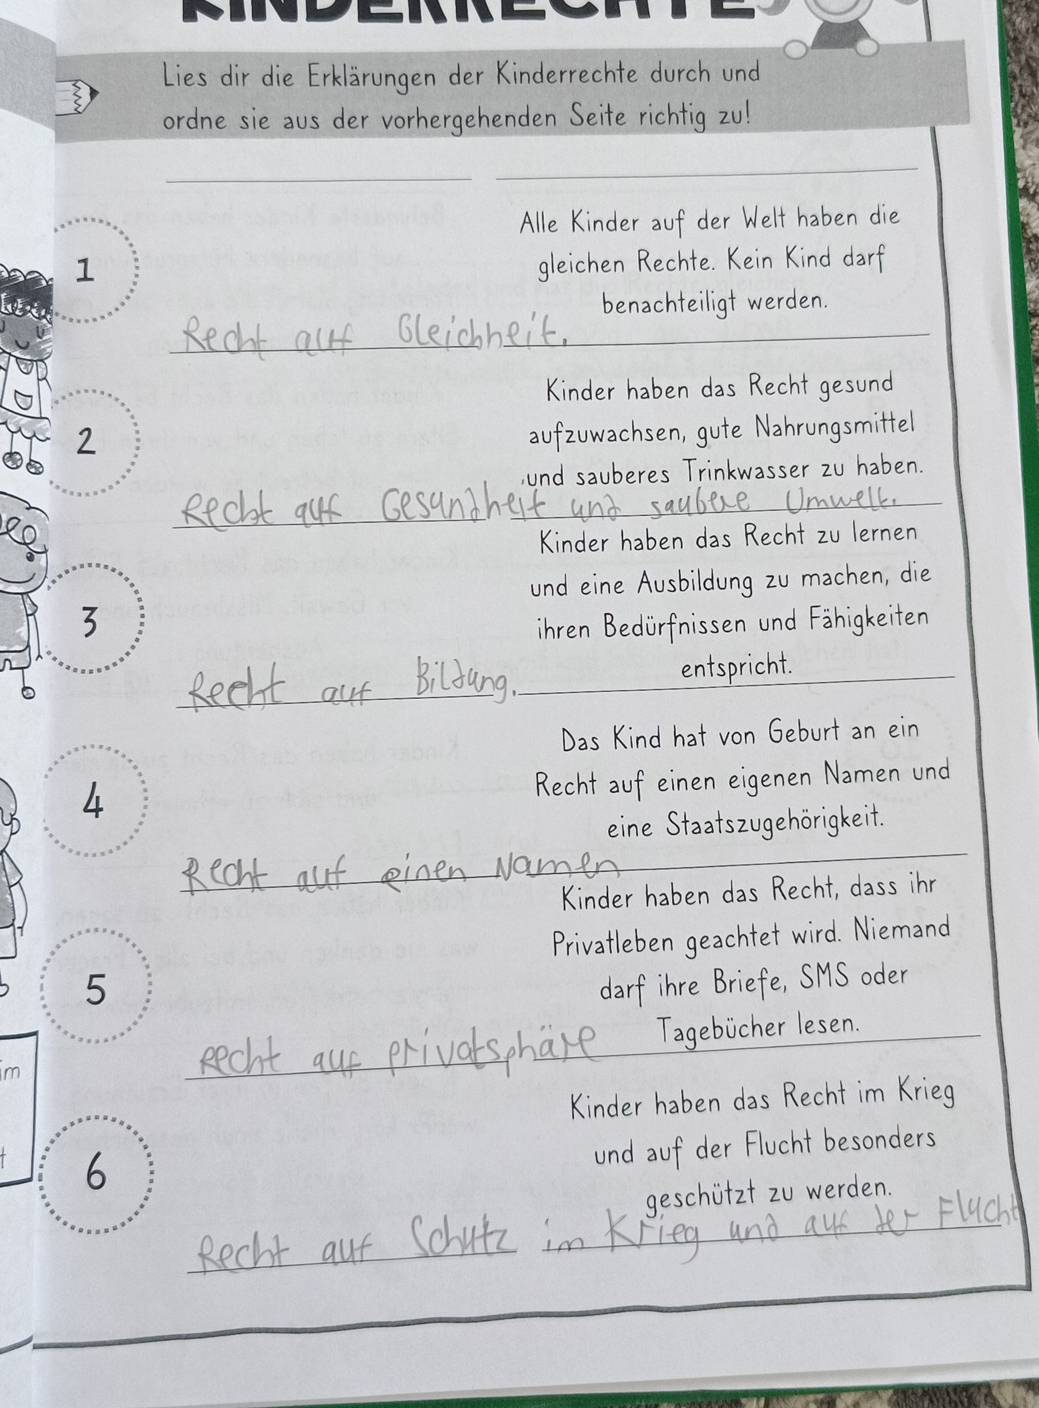 KINDERRECHTE
Lies dir die Erklärungen der Kinderrechte durch und
ordne sie aus der vorhergehenden Seite richtig zu!
1
Alle Kinder auf der Welt haben die
gleichen Rechte. Kein Kind darf
benachteiligt werden.
Recht auf Gleichheit.
2
Kinder haben das Recht gesund
aufzuwachsen, gute Nahrungsmittel
und sauberes Trinkwasser zu haben.
Recht auf Gesundheit und saubere Umwelt.
3
Kinder haben das Recht zu lernen
und eine Ausbildung zu machen, die
ihren Bedürfnissen und Fähigkeiten
entspricht.
Recht auf Bildung.
4
Das Kind hat von Geburt an ein
Recht auf einen eigenen Namen und
eine Staatszugehörigkeit.
Recht auf einen Namen
5
Kinder haben das Recht, dass ihr
Privatleben geachtet wird. Niemand
darf ihre Briefe, SMS oder
Tagebücher lesen.
Recht auf privatsphäre
im
6
Kinder haben das Recht im Krieg
und auf der Flucht besonders
geschützt zu werden.
Recht auf Schutz im Krieg und auf der Flucht